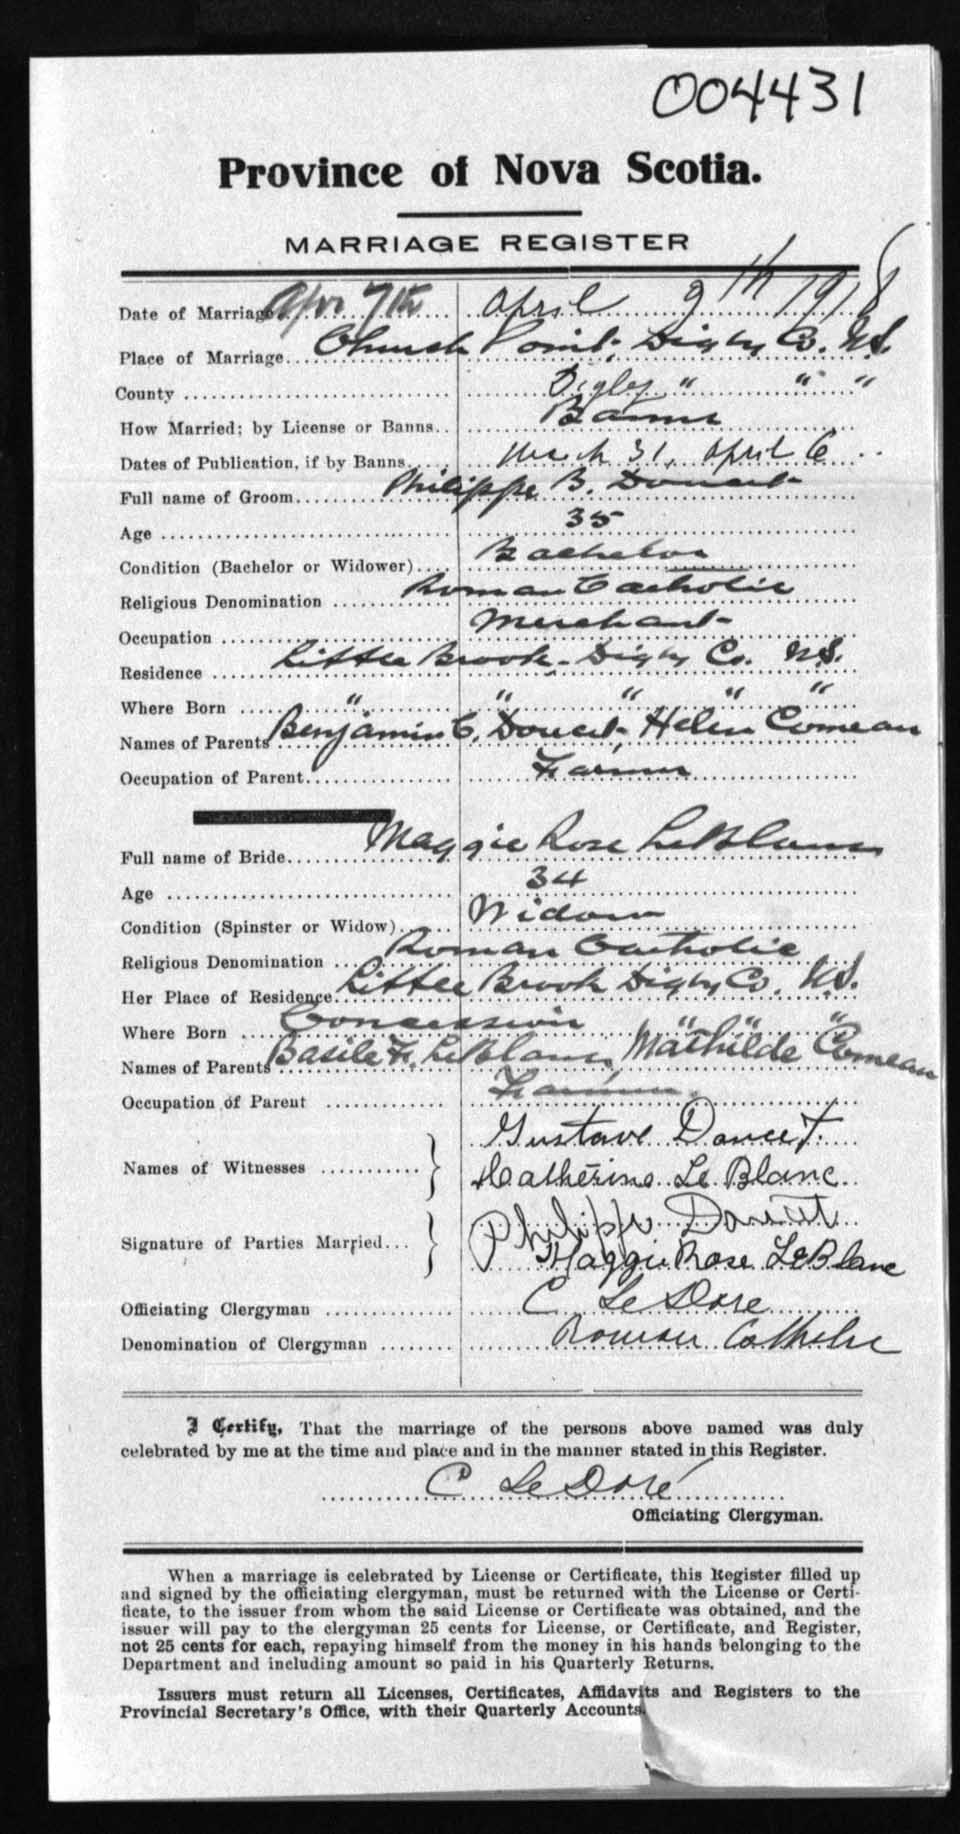 004431
Province of Nova Scotia.
MARRIAGE REGISTER
Date of Marriage Apr 7th April 9th 1918
Place of Marriage Church Point, Digby Co. N.S.
County Digby " " "
How Married; by License or Banns Banns
Dates of Publication, if by Banns March 31, April 6
Full name of Groom Philippe B. Doucet
Age 35
Condition (Bachelor or Widower) Bachelor
Religious Denomination Roman Catholic
Occupation Merchant
Residence Little Brook Digby Co. N.S.
Where Born " " " " "
Names of Parents Benjamin C. Doucet, Helen Comeau
Occupation of Parent Farmer
Full name of Bride Maggie Rose LeBlanc
Age 34
Condition (Spinster or Widow) Widow
Religious Denomination Roman Catholic
Her Place of Residence Little Brook Digby Co. N.S.
Where Born Concession " " "
Names of Parents Basile F. LeBlanc, Mathilde Comeau
Occupation of Parent Farmer
Names of Witnesses Gustave Doucet.
Catherine Le Blanc
Signature of Parties Married Philippe Doucet
Maggie Rose LeBlanc
Officiating Clergyman C LeDore
Denomination of Clergyman Roman Catholic
I Certify, That the marriage of the persons above named was duly
celebrated by me at the time and place and in the manner stated in this Register.
C LeDoré
Officiating Clergyman.
When a marriage is celebrated by License or Certificate, this Register filled up
and signed by the officiating clergyman, must be returned with the License or Certi-
ficate, to the issuer from whom the said License or Certificate was obtained, and the
issuer will pay to the clergyman 25 cents for License, or Certificate, and Register,
not 25 cents for each, repaying himself from the money in his hands belonging to the
Department and including amount so paid in his Quarterly Returns.
Issuers must return all Licenses, Certificates, Affidavits and Registers to the
Provincial Secretary's Office, with their Quarterly Accounts.